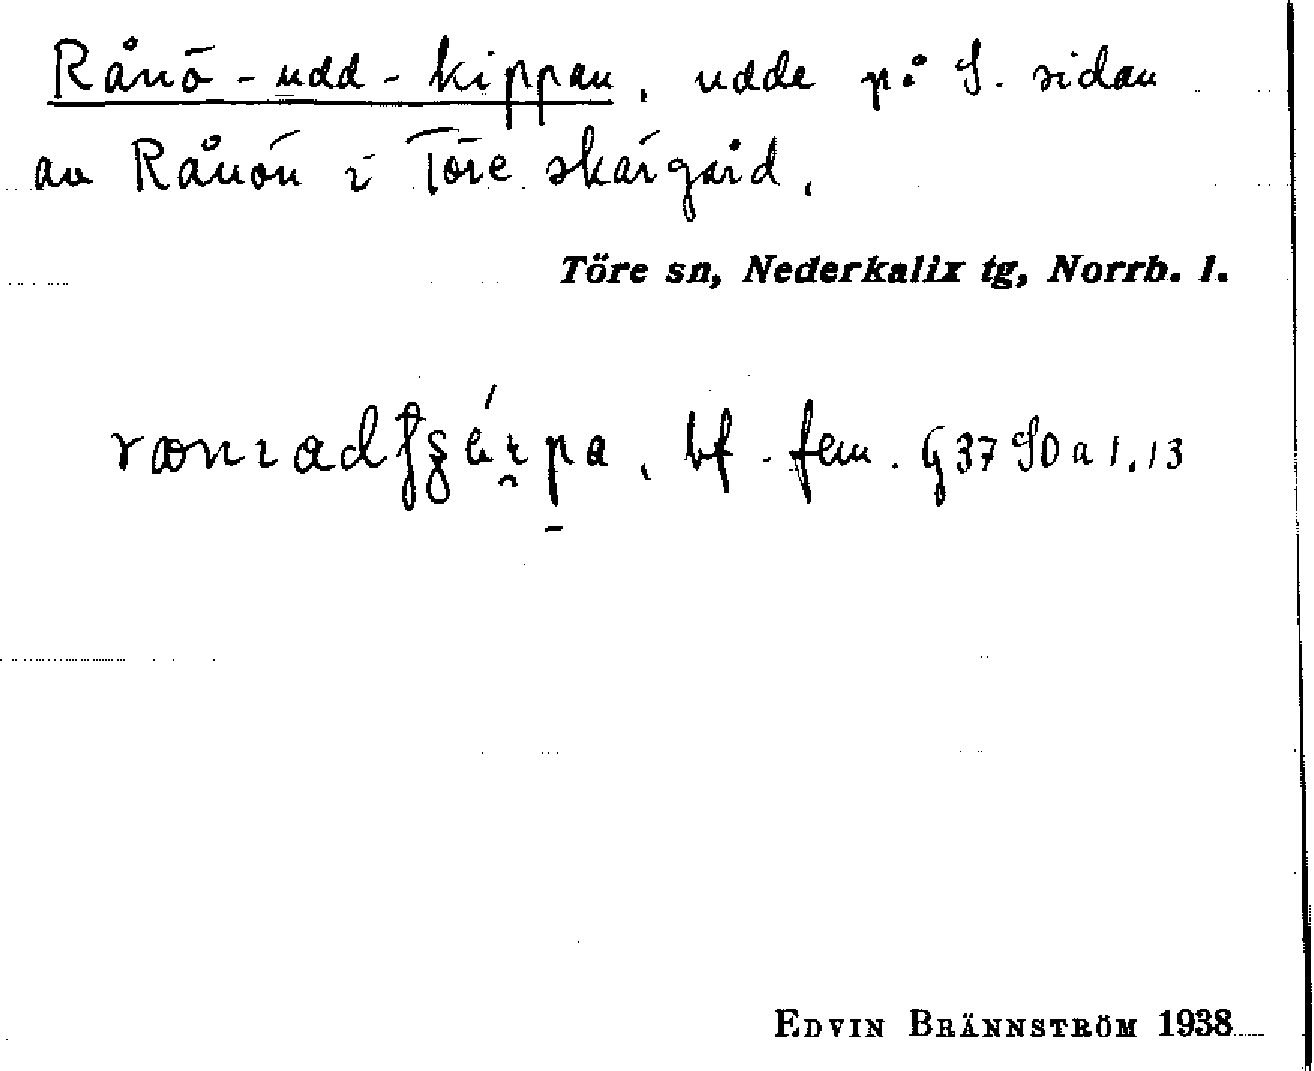 Rånö-udd-kippan, udde på S. sidan
av Rånön i Töre skärgård.
Töre sn, Nederkalix tg, Norrb. l.
bf. fem. G 37 SO a 1.13
EDVIN BRÄNNSTRÖM 1938